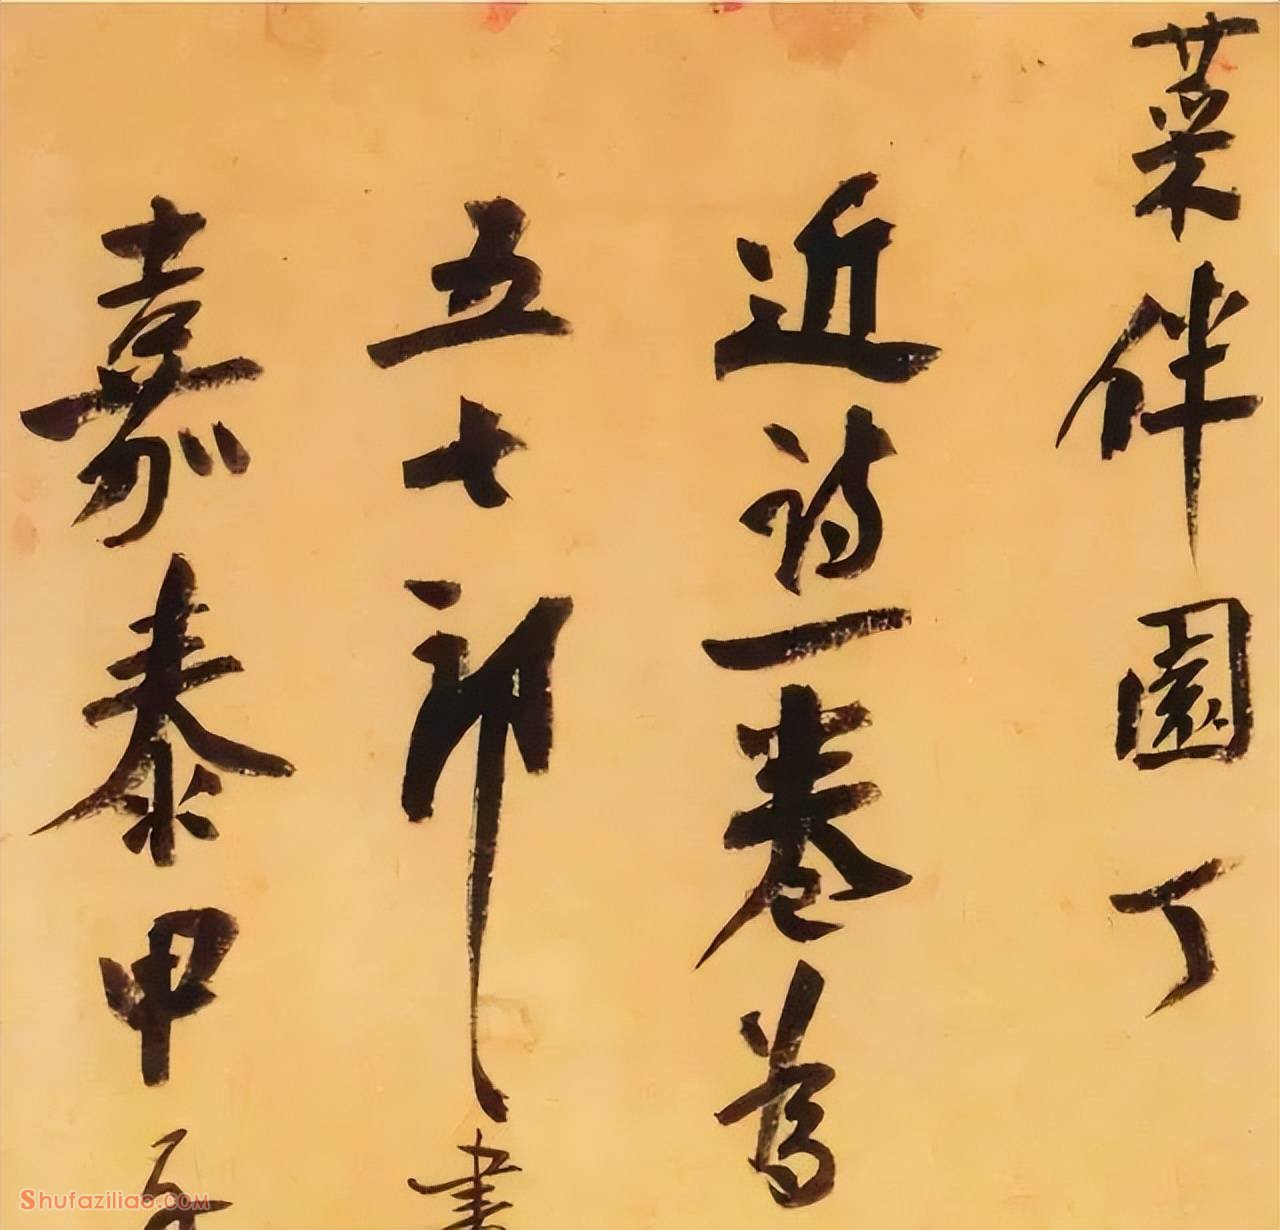 菜伴園丁
近詩一卷為
五七郎書
嘉泰甲
Shufaziliao.COM